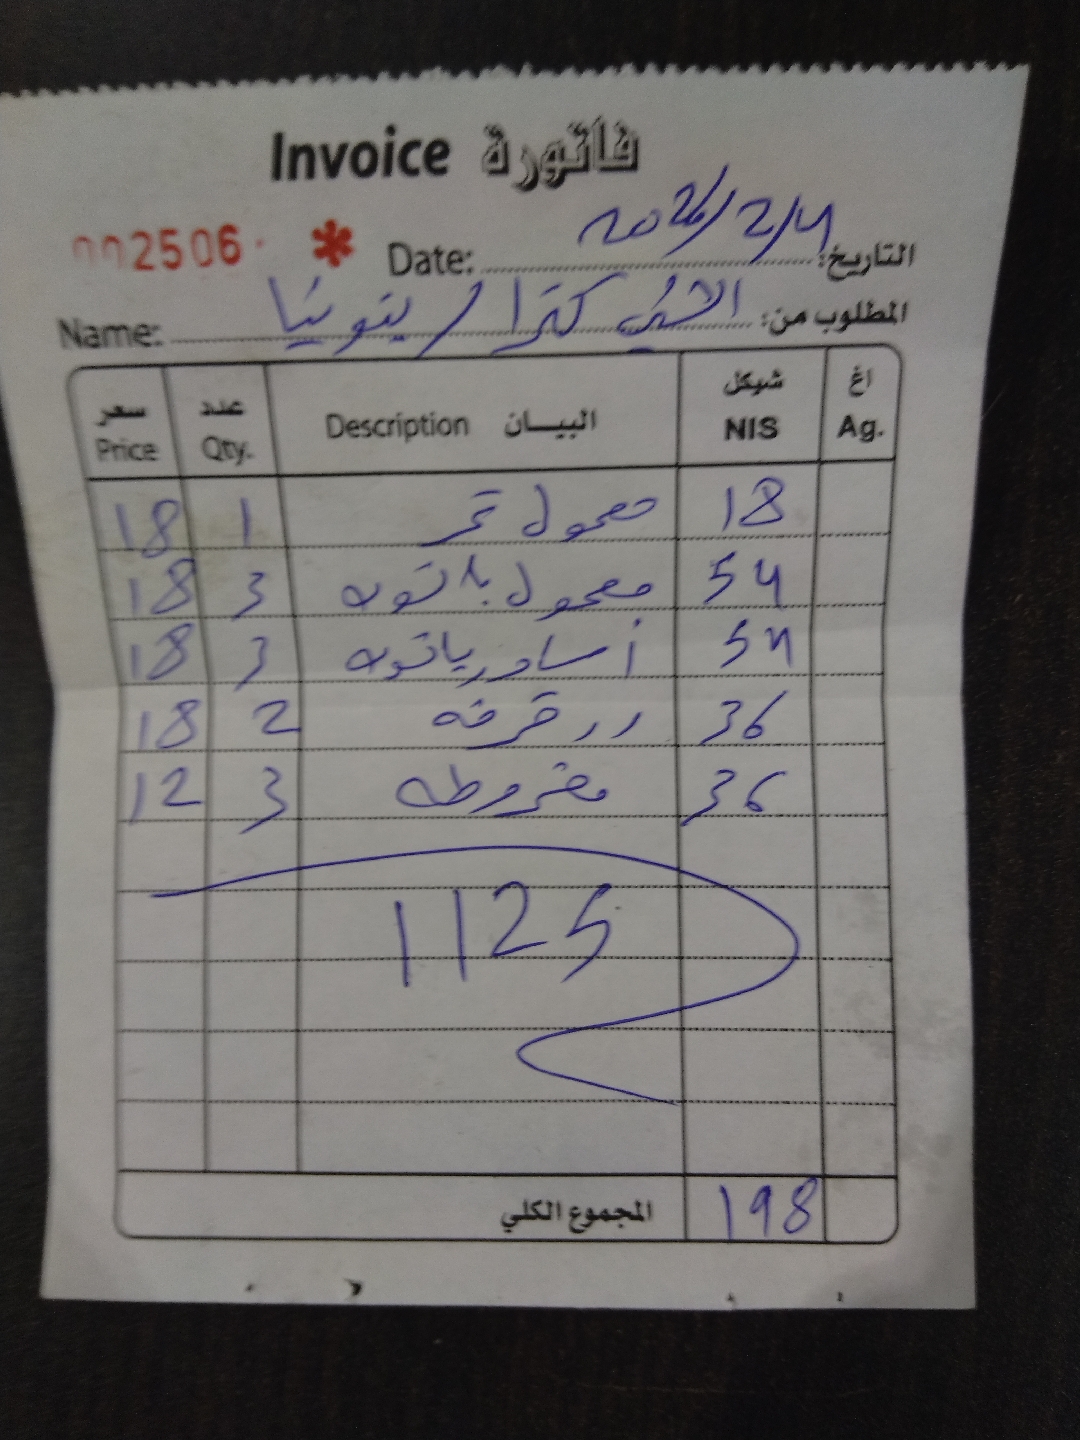 Invoice فاتورة
002506 * Date: 2026/2/4 التاريخ:
Name: كترا / يتونيا المطلوب من:
سعر Price عدد Qty. Description البيان شيكل NIS اغ Ag.
18 1 معمول تمر 18
18 3 معمول باتونه 54
18 3 أساور ياتونه 54
18 2 رر قرفه 36
12 3 مخروطه 36
1125
المجموع الكلي 198